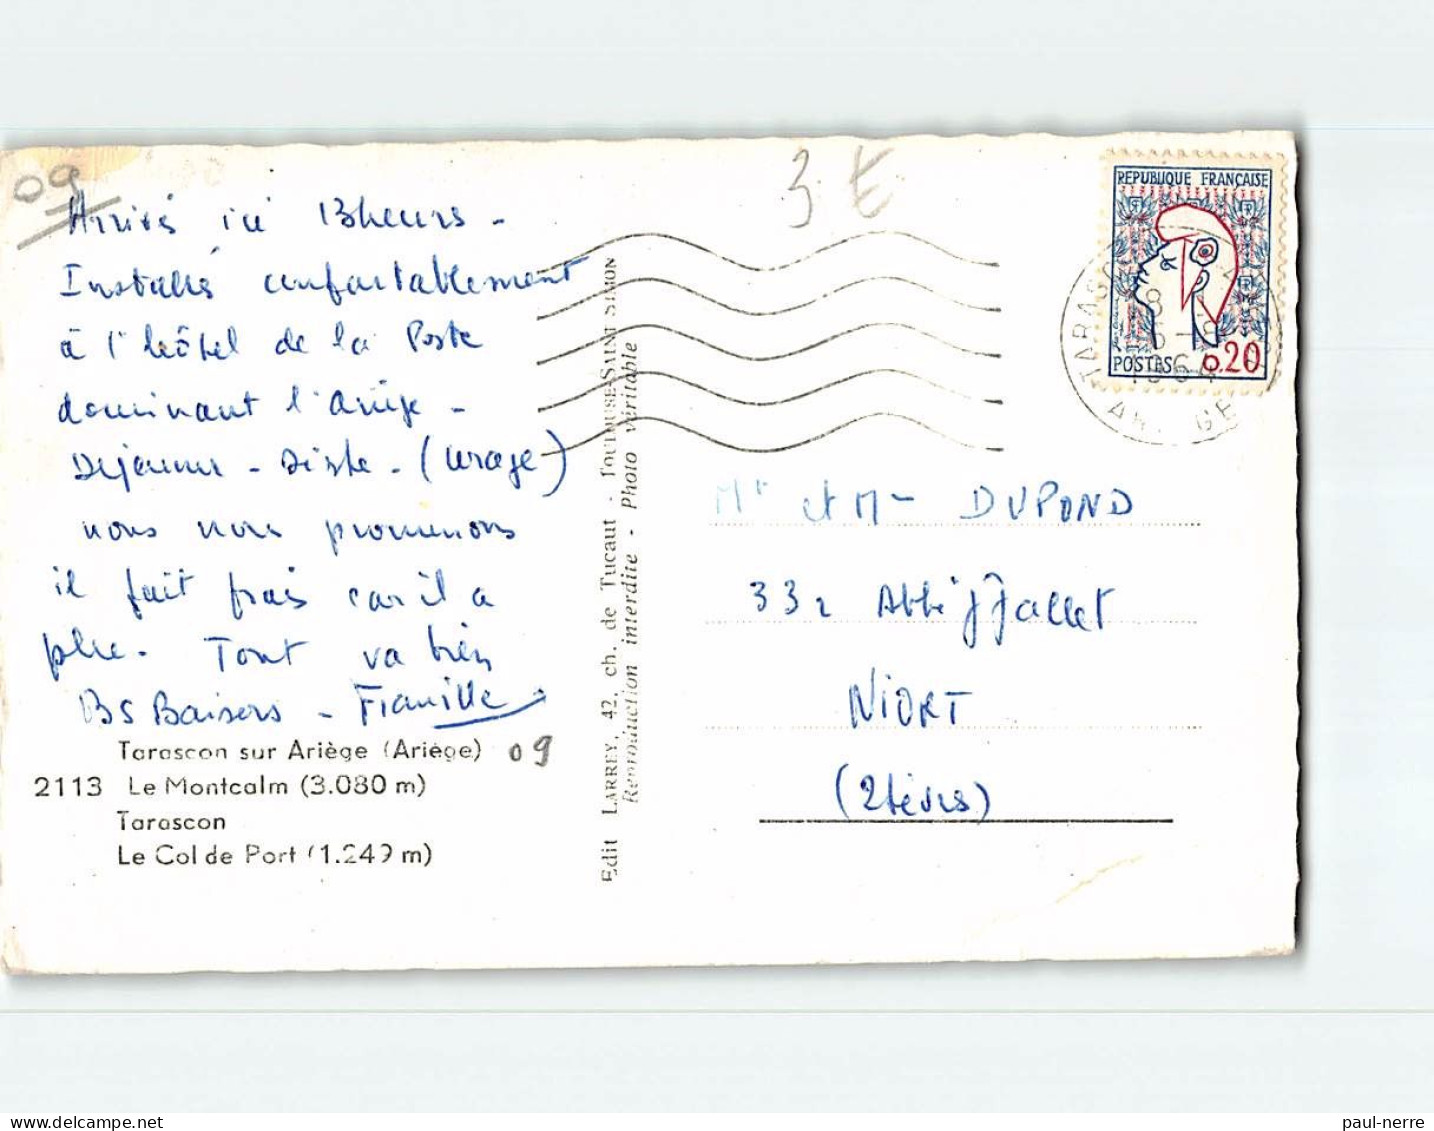 09
3 €
Arrivés ici 13 heures -
Installés confortablement
à l'hôtel de la Poste
dominant l'Ariège -
Déjeuner - Sieste - (orage)
nous nous promenons
il fait frais car il a
plu. Tout va bien
BS Baisers -
Tarascon sur Ariège (Ariège) 09
2113 Le Montcalm (3.080 m)
Tarascon
Le Col de Port (1.249 m)
Edit LARREY, 42, ch. de Tucaut - TOULOUSE-SAINT SIMON
Reproduction interdite - Photo véritable
REPUBLIQUE FRANÇAISE
POSTES 0.20
TARASC
1964
Mr et Mme DUPOND
33 r Abbé Jallet
NIORT
(2 Sèvres)
paul-nerre